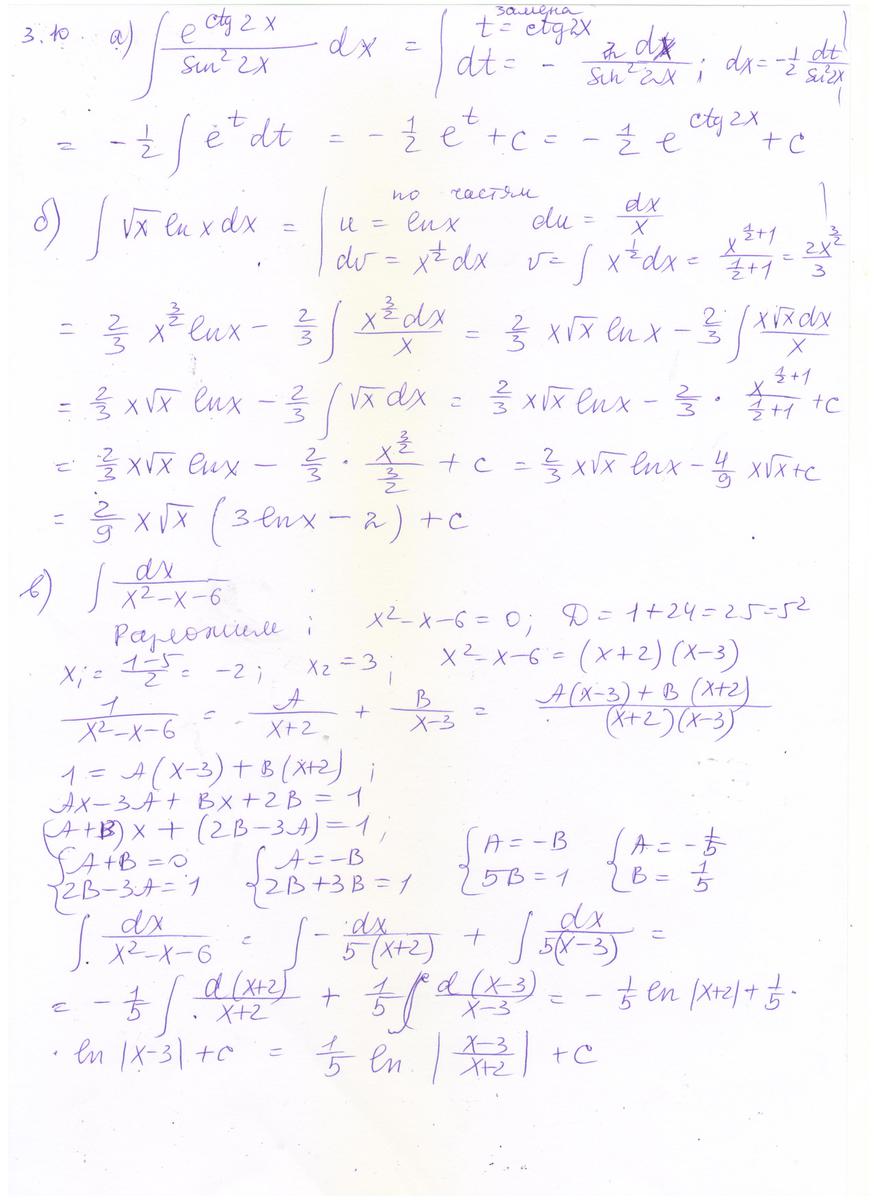 3.10 а) ∫ e^{ctg 2x} / sin² 2x dx = | замена t = ctg 2x dt = - 2 dx / sin² 2x ; dx = -1/2 dt / sin² 2x |
= -1/2 ∫ e^t dt = - 1/2 e^t + c = - 1/2 e^{ctg 2x} + c
б) ∫ √x ln x dx = | по частям u = ln x du = dx/x dv = x^{1/2} dx v = ∫ x^{1/2} dx = x^{1/2+1} / (1/2+1) = 2x^{3/2} / 3 |
= 2/3 x^{3/2} ln x - 2/3 ∫ x^{3/2} dx / x = 2/3 x√x ln x - 2/3 ∫ x√x dx / x
= 2/3 x√x ln x - 2/3 ∫ √x dx = 2/3 x√x ln x - 2/3 · x^{1/2+1} / (1/2+1) + c
= 2/3 x√x ln x - 2/3 · x^{3/2} / (3/2) + c = 2/3 x√x ln x - 4/9 x√x + c
= 2/9 x√x (3 ln x - 2) + c
в) ∫ dx / (x² - x - 6)
Разложим ; x² - x - 6 = 0; D = 1 + 24 = 25 = 5²
x₁ = (1-5)/2 = -2; x₂ = 3; x² - x - 6 = (x+2)(x-3)
1 / (x² - x - 6) = A / (x+2) + B / (x-3) = (A(x-3) + B(x+2)) / ((x+2)(x-3))
1 = A(x-3) + B(x+2) ;
Ax - 3A + Bx + 2B = 1
(A+B)x + (2B-3A) = 1;
{ A+B = 0 { A = -B { A = -B { A = -1/5
{ 2B-3A = 1 { 2B+3B = 1 { 5B = 1 { B = 1/5
∫ dx / (x² - x - 6) = ∫ - dx / 5(x+2) + ∫ dx / 5(x-3) =
= - 1/5 ∫ d(x+2) / (x+2) + 1/5 ∫ d(x-3) / (x-3) = - 1/5 ln |x+2| + 1/5 ·
· ln |x-3| + c = 1/5 ln | (x-3) / (x+2) | + c